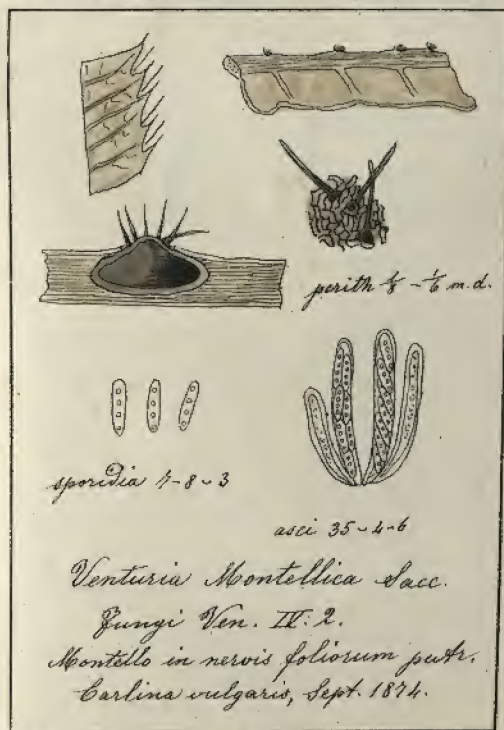 perith 1/8 - 1/6 m.d.
sporidia 7-8 - 3
asci 35 - 4-6
Venturia Montellica Sacc.
Fungi Ven. IV. 2.
Montello in nervis foliorum putr.
Carlina vulgaris, Sept. 1874.